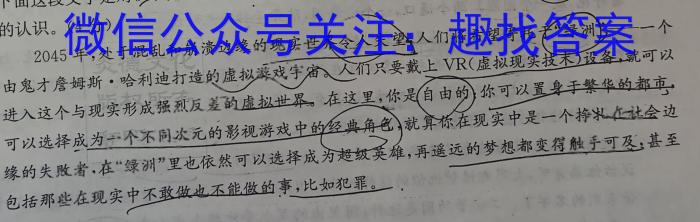 的认识。
微信公众号关注:趣找答案
2045年,处于混乱和崩溃边缘的现实世界令人失望,人们
一个
由鬼才詹姆斯·哈利迪打造的虚拟游戏宇宙。人们只要戴上VR(虚拟现实技术)设备,就可以
进入这个与现实形成强烈反差的虚拟世界。在这里,你是自由的:你可以置身于繁华的都市,
可以选择成为一个不同次元的影视游戏中的经典角色,就算你在现实中是一个挣扎在社会边
缘的失败者,在“绿洲”里也依然可以选择成为超级英雄,再遥远的梦想都变得触手可及,甚至
包括那些在现实中不敢做也不能做的事,比如犯罪。